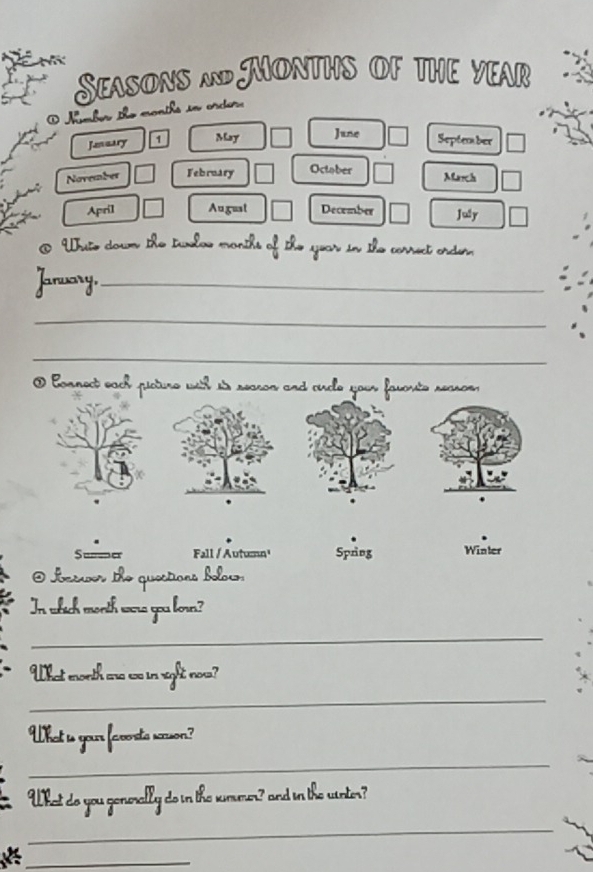 SEASONS AND MONTHS OF THE YEAR
① Number the months in order:
January 1 May June September
November February October March
April August December July
② Write down the twelve months of the year in the correct order:
January,
③ Connect each picture with its season and circle your favorite season:
Summer Fall / Autumn Spring Winter
④ Answer the questions below:
In which month were you born?
What month are we in right now?
What is your favorite season?
What do you generally do in the summer? and in the winter?